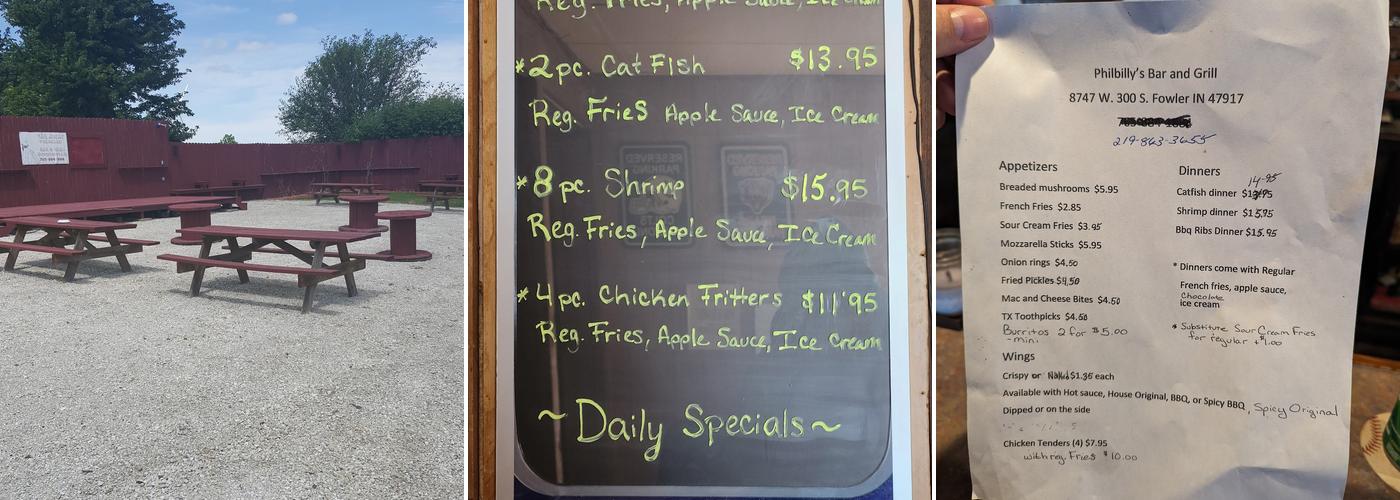 Reg. Fries, Apple Sauce, Ice Cream
*2 pc. Cat Fish $13.95
Reg. Fries Apple Sauce, Ice Cream
*8 pc. Shrimp $15.95
Reg. Fries, Apple Sauce, Ice Cream
*4 pc. Chicken Fritters $11.95
Reg. Fries, Apple Sauce, Ice Cream
~Daily Specials~
RESERVED
PARKING
RESERVED
PARKING
Philbilly's Bar and Grill
8747 W. 300 S. Fowler IN 47917
219-863-3655
Appetizers
Breaded mushrooms $5.95
French Fries $2.85
Sour Cream Fries $3.95
Mozzarella Sticks $5.95
Onion rings $4.50
Fried Pickles $4.50
Mac and Cheese Bites $4.50
TX Toothpicks $4.50
Burritos 2 for $5.00
-mini
Wings
Crispy or Naked $1.35 each
Available with Hot sauce, House Original, BBQ, or Spicy BBQ, Spicy Original
Dipped or on the side
Chicken Tenders (4) $7.95
with reg. Fries $10.00
Dinners
14.95
Catfish dinner
Shrimp dinner $15.95
Bbq Ribs Dinner $15.95
* Dinners come with Regular
French fries, apple sauce,
Chocolate
ice cream
* Substitute Sour Cream Fries
for regular +$1.00